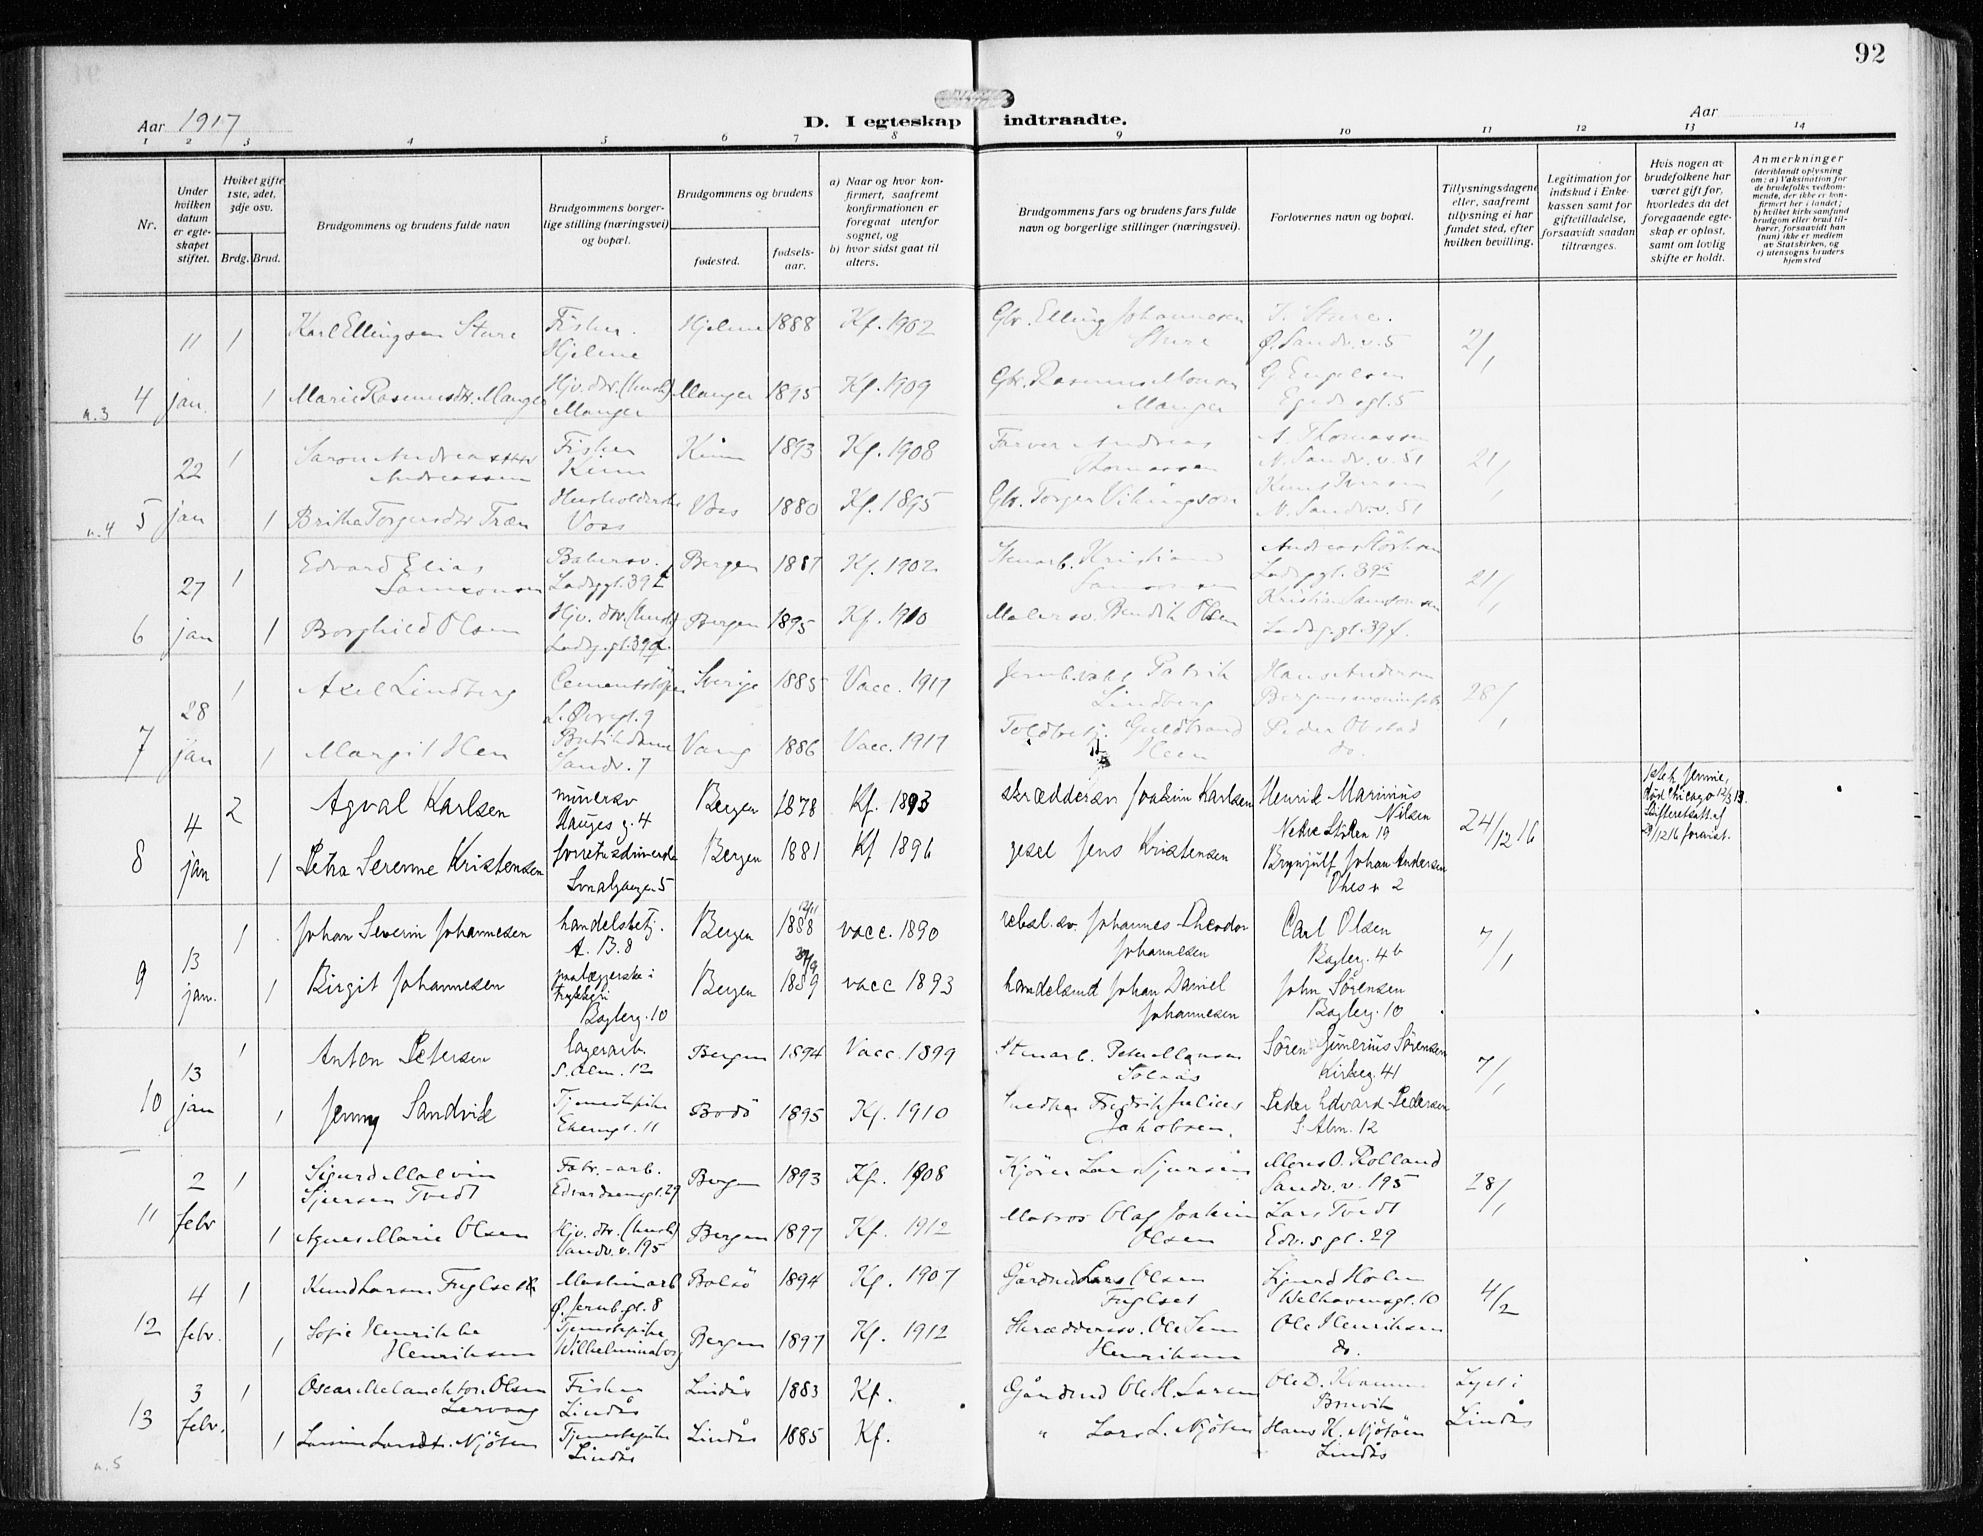 92
Aar 1917
D. I egteskap indtraadte.
Aar
1 2 3 4 5 6 7 8 9 10 11 12 13 14
Nr.
Under hvilken datum er egteskapet stiftet.
Hviket gifte 1ste, 2det, 3dje osv.
Brdg. Brud.
Brudgommens og brudens fulde navn
Brudgommens borgerlige stilling (næringsvei) og bopæl.
Brudgommens og brudens
fødested.
fødselsaar.
a) Naar og hvor konfirmert, saafremt konfirmationen er foregaat utenfor sognet, og
b) hvor sidst gaat til alters.
Brudgommens fars og brudens fars fulde navn og borgerlige stillinger (næringsvei).
Forlovernes navn og bopæl.
Tillysningsdagene eller, saafremt tillysning ei har fundet sted, efter hvilken bevilling.
Legitimation for indskud i Enkekassen samt for giftetilladelse, forsaavidt saadan tiltrænges.
Hvis nogen av brudefolkene har været gift før, hvorledes da det foregaaende egteskap er opløst, samt om lovlig skifte er holdt.
Anmerkninger
(deriblandt oplysning om: a) Vaksination for de brudefolks vedkommende, der ikke er konfirmert her i landet; b) hvilket kirkesamfund brudgom eller brud tilhører, forsaavidt han (hun) ikke er medlem av Statskirken, og c) utensogns bruders hjemsted
n.3 4 11 jan. 1 Karl Ellingsen Sture Fisker. Hjelme Hjelme 1888 Kf. 1902 Gbr. Elling Johannesen Sture Sture. Ø. Sandv. v. 5 2/1
1 Marie Rasmusdtr. Manger Hjv. dtr. (hush) Manger Manger 1895 Kf. 1909 Gbr. Rasmus Monsen Manger G Engelsen Egeds gt. 5
n.4 5 22 jan 1 Andreassen Fisker Kinn Kinn 1893 Kf. 1908 Farver Andreas Thomassen A. Thomassen N. Sandv. v. 51 21/1
1 Britha Torgersdtr Træn Husholderske Voss Voss 1880 Kf. 1895 Gbr. Torger Vikingson Knut Iversen N. Sandv. v. 51
6 27 jan 1 Edvard Elias Samsonsen Bakersv. Ladegt. 39 Bergen 1887 Kf. 1902 Stenarb. Kristian Samsonsen Andreas Ladegt. 39 21/1
1 Borghild Olsen Hjv. dtr. (hush) Ladeg. gt. 39 Bergen 1895 Kf. 1910 Malersv. Bendik Olsen Kristian Samsonsen Ladeg. gt. 39
7 28 jan 1 Axel Lindberg L. Øvregt. 9 Sverige 1885 Vacc. 1917 Patrik Lindberg Hans Andersen 28/1
1 Margit Hen Butikdame Sandv. 7 Vang 1886 Vacc. 1917 Toldbetj. Guldbrand Heen Peder Obstad do.
8 4 jan 2 Agval Karlsen murersv Hauges g. 4 Bergen 1878 Kf. 1893 skræddersv Joakim Karlsen Henrik Marinius Nilsen Nedre Stølen 19 24/12 16
1ste h. Jennie, død Chicago 12/3 13. Skifteretsatt. af 29/12 16 forevist.
1 Petra Serenne Kristensen forretsdriverske 5 Bergen 1881 Kf 1896 gesel Jens Kristensen Brynjulf Johan Andersen 2
9 13 jan. 1 Johan Severin Johannesen handelsbetj. A. B. 8 Bergen 12/11 1888 vacc. 1890 rebsl. sv. Johannes Theodor Johannesen Carl Olsen Baglerg. 4b 7/1
1 Birgit Johannesen paalæggerske i trykkeri Baglerg. 10 Bergen 1889 vacc 1893 handelsmd Johan Daniel Johannesen John Sørensen Baglerg. 10
10 13 jan 1 Anton Petersen lagerarb. S. Alm. 12 Bergen 1894 Vacc. 1899 Stuarb. Peter Monsen Søren Gunerius Sørensen Kirkeg. 41 7/1
1 Jenny Sandvik Tjenestepike 11 Bodö 1895 Kf. 1910 Snedker Fredrik Julius Jakobsen. Peder Edvard Pedersen S. Alm. 12
11 2 febr 1 Sigurd Malvin Sjursen Tvedt Fabr.-arb. Edvardsensgt. 29 Bergen 1893 Kf. 1908 Kjörer Lars Sjursen Mons O. Rolland Sandv. v. 195 28/1
1 Agnes Marie Olsen Hjv. dtr. (hush) Sandv. v. 195 Bergen 1897 Kf. 1912 Matros Olaf Joakim Olsen Lars Tvedt Edv. s gt. 29
12 4 febr. 1 Knud Larsen Fuglset Maskinarb Ø. Jernb. gt. 8 Bolsö 1894 Kf. 1907 Gårdmd Lars Olsen Fuglset Sigurd Holm Welhavensgt. 10 4/2
1 Sofie Henrikke Henriksen Tjenestepike Wilhelminaborg Bergen 1897 Kf. 1912 Skræddersv. Ole Sem Henriksen Ole Henriksen do.
n.5 13 3 febr. 1 Oscar Melanchton Olsen Lervaag Fisker Lindås Lindås 1883 Kf. Gårdmd Ole H. Larsen Ole D. Kvamme Lyst i Lindås
1 Larsine Larsdtr. Njöten Tjenestepike Lindås Lindås 1885 Kf. " Lars L. Njöten Hans K. Njöten Lindås